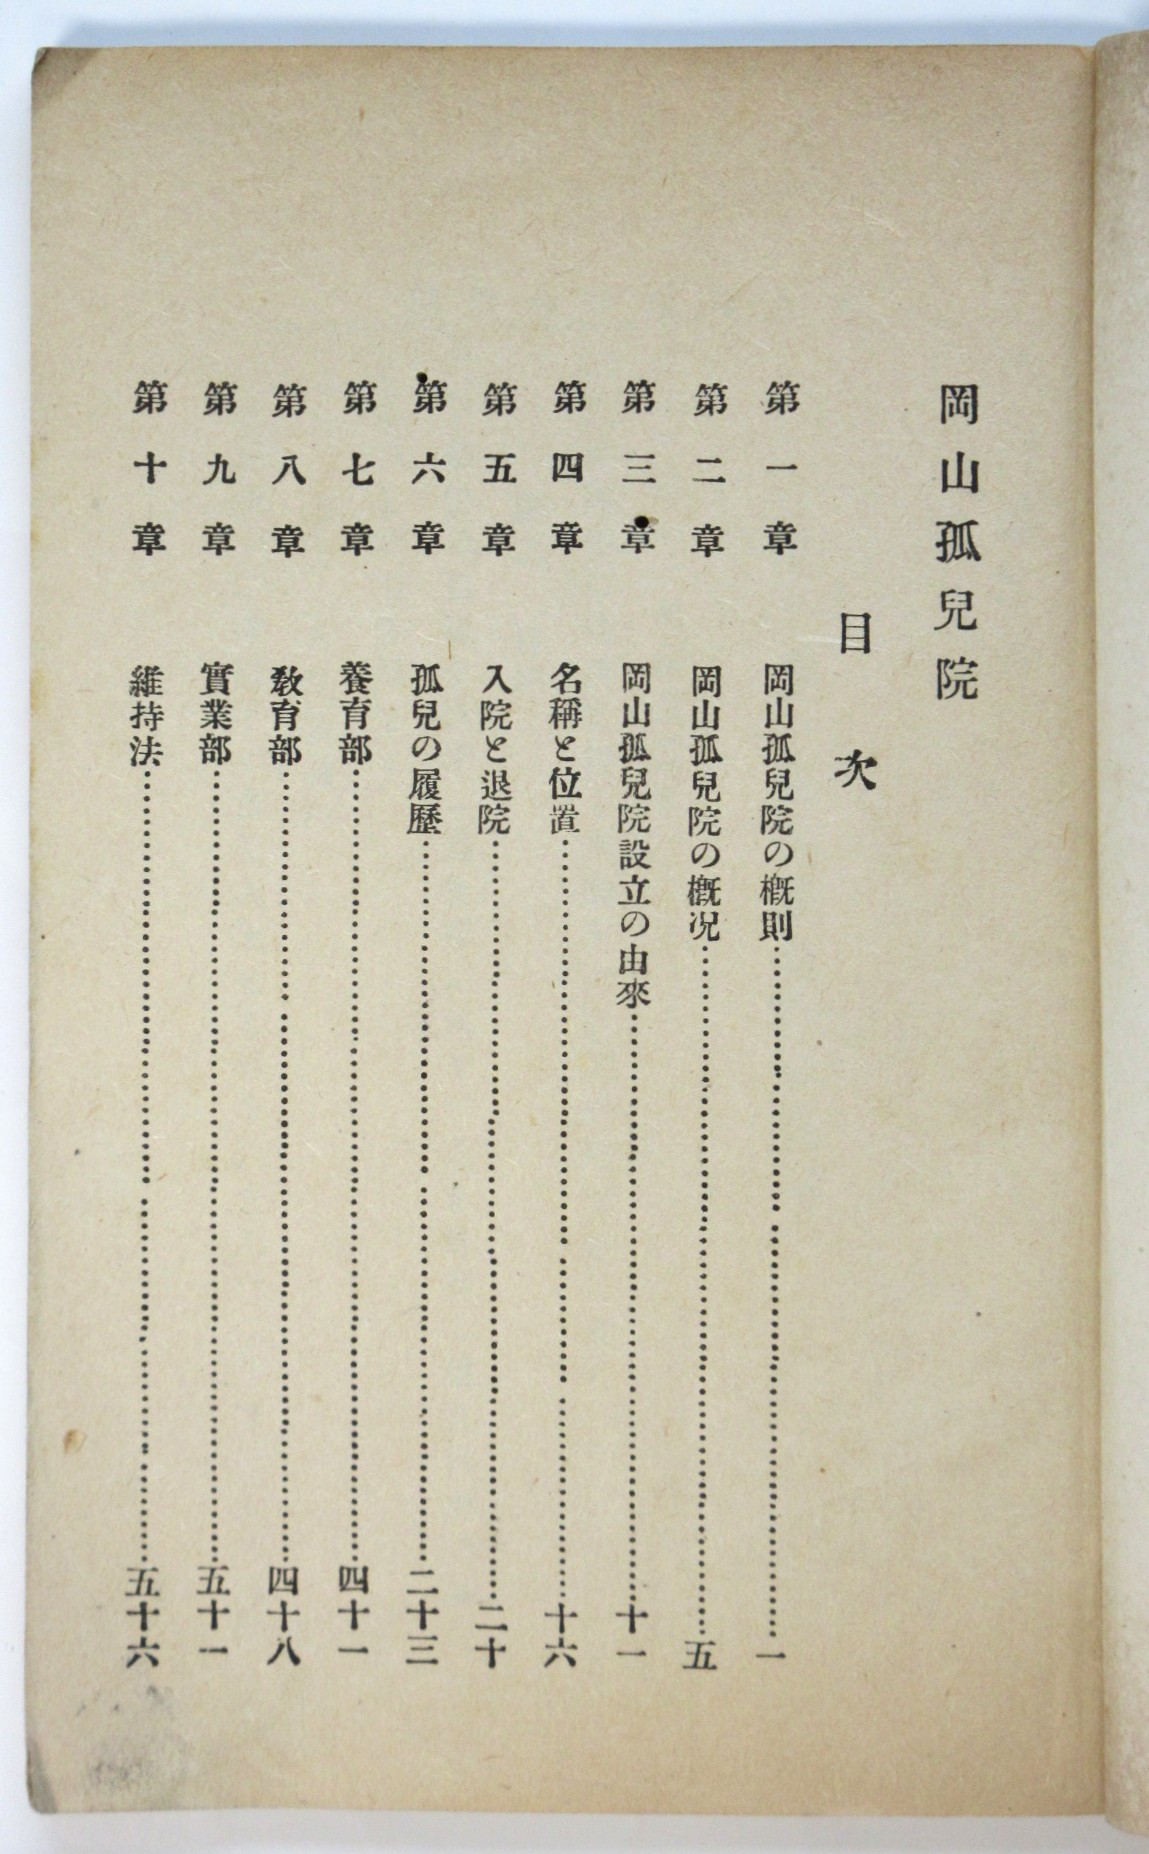 岡山孤兒院
目次
第一章 岡山孤兒院の概則……一
第二章 岡山孤兒院の概况……五
第三章 岡山孤兒院設立の由來……十一
第四章 名稱と位置……十六
第五章 入院と退院……二十
第六章 孤兒の履歷……二十三
第七章 養育部……四十一
第八章 敎育部……四十八
第九章 實業部……五十一
第十章 維持法……五十六